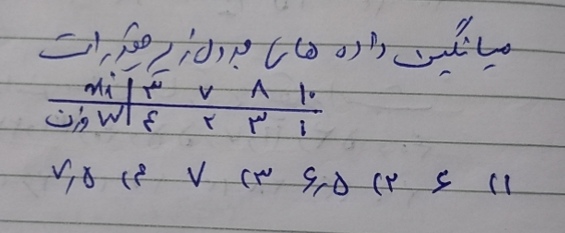 میانگین داده های جدول زیر چقدر است
xi | ۳ ۷ ۸ ۱۰
وزن W | ۴ ۲ ۳ ۱
۱) ۶ ۲) ۶٫۵ ۳) ۷ ۴) ۷٫۵